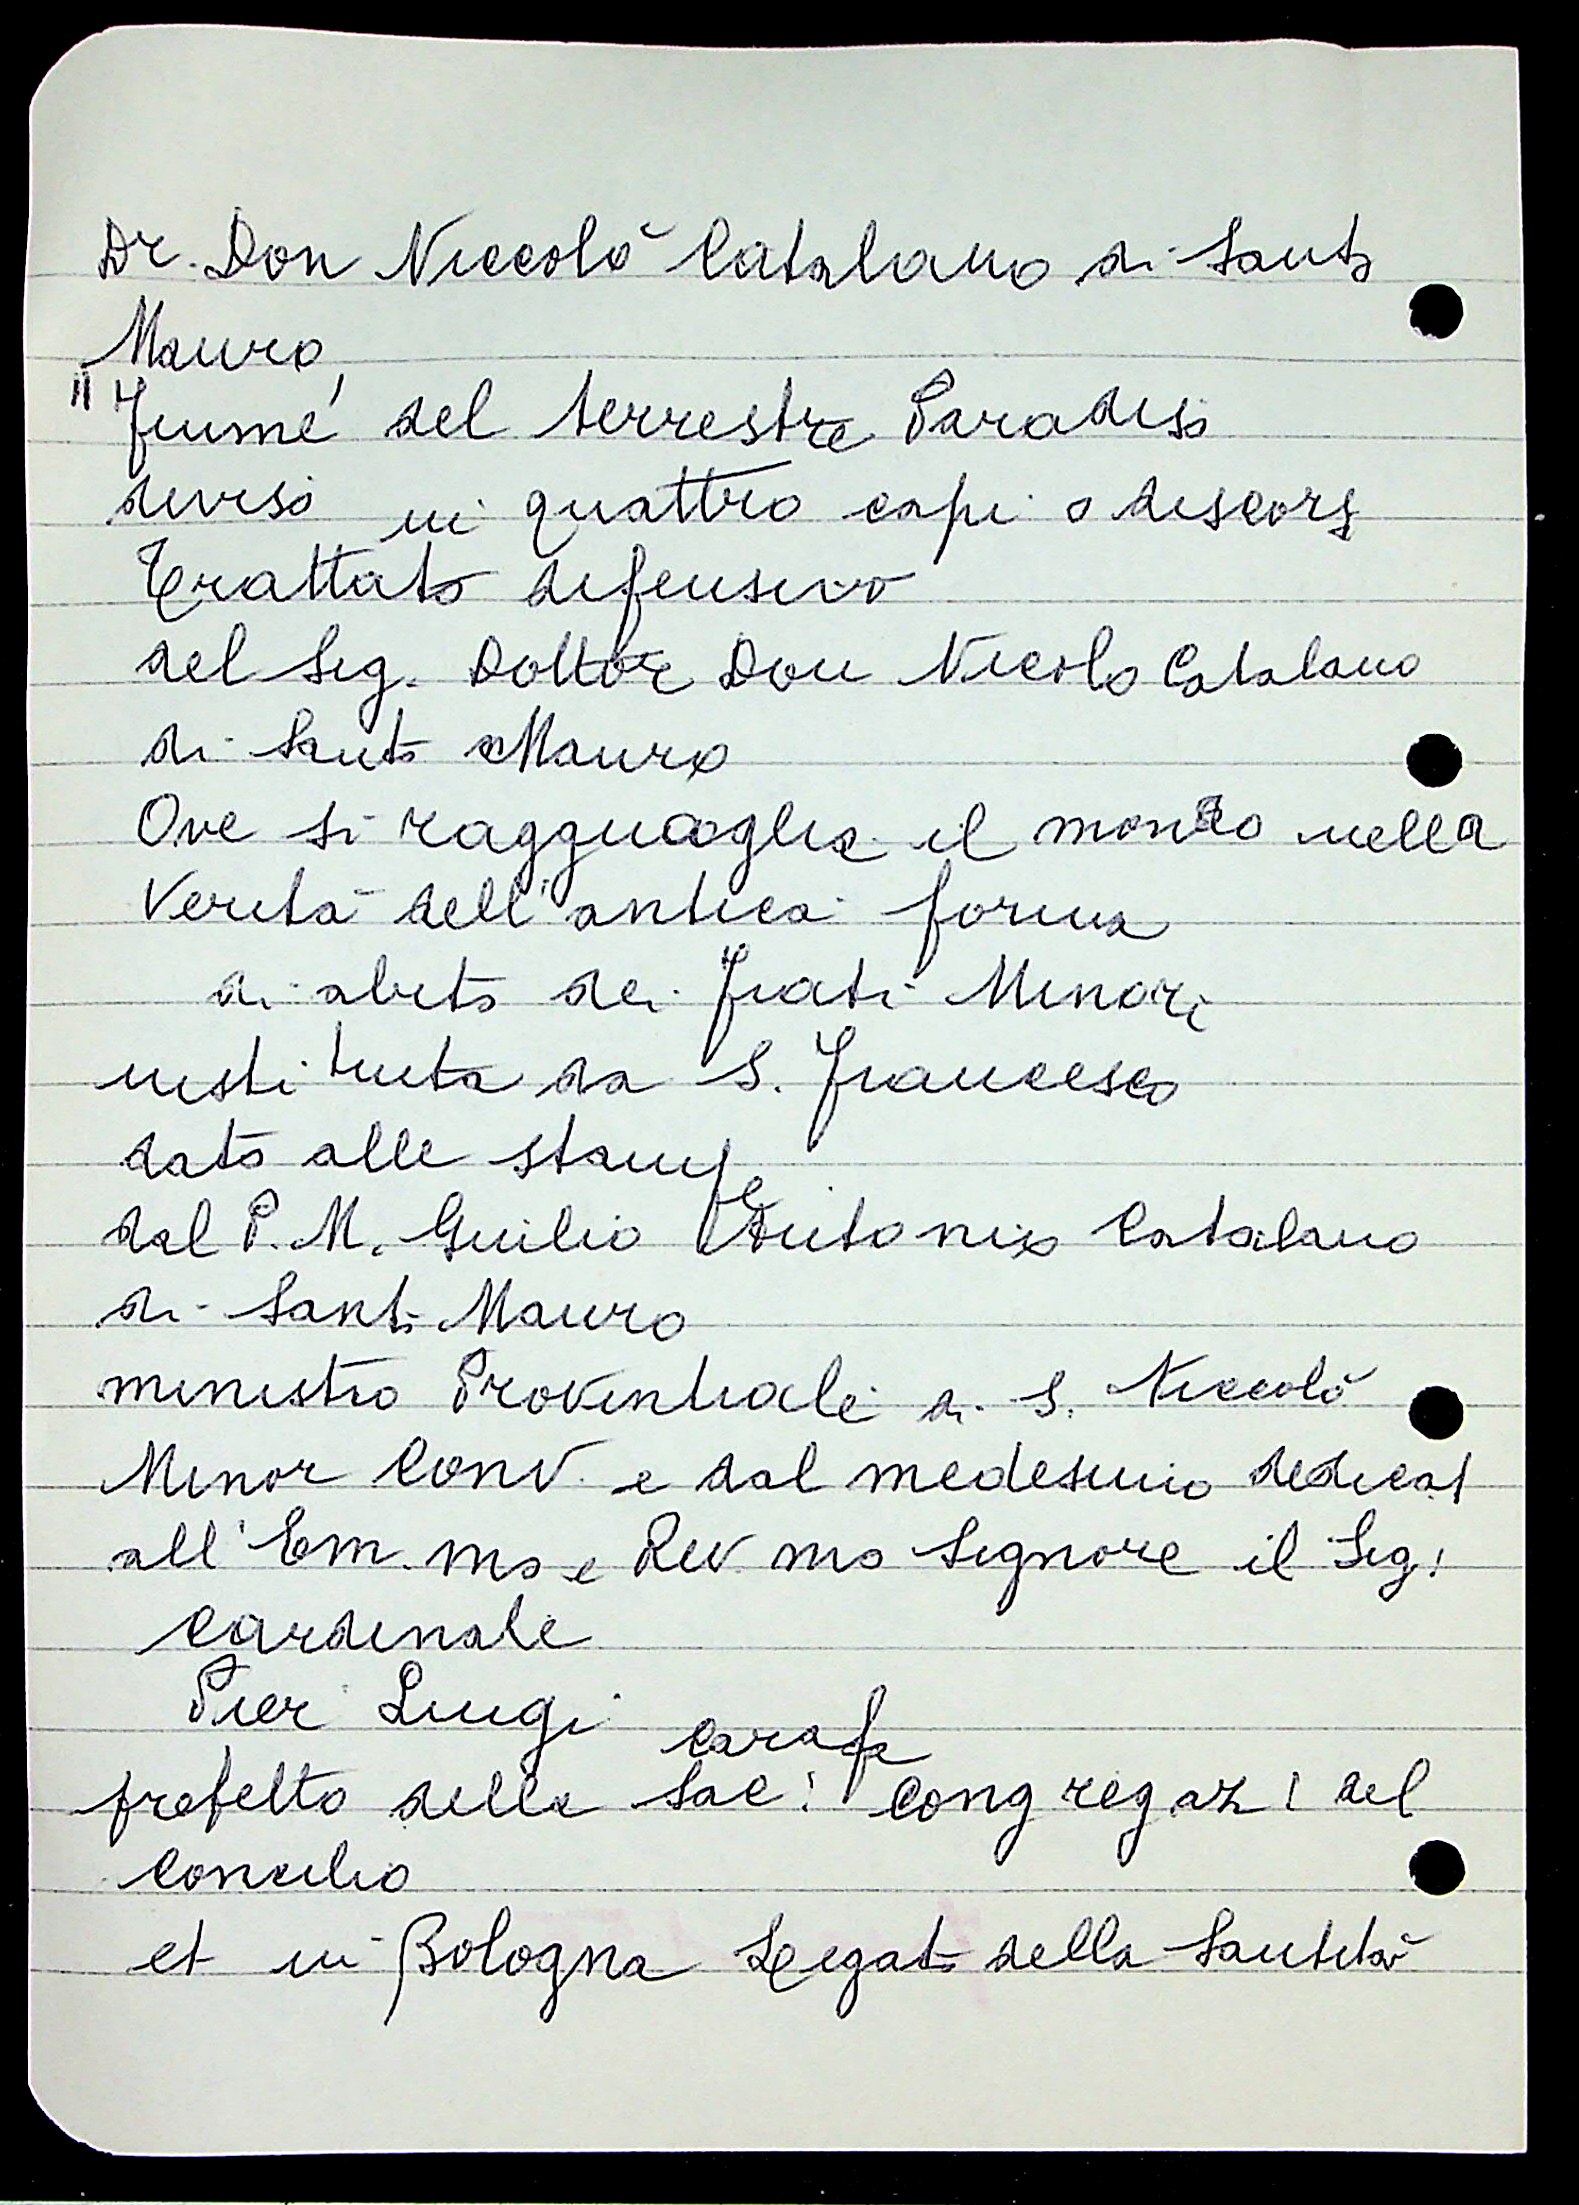 Dr. Don Niccolò Catalano di Santo
Mauro
"Fiume del terrestre Paradiso
diviso in quattro capi o discorsi
Trattato difensivo
del Sig. Dottor Don Nicolo Catalano
di Santo Mauro
Ove si ragguaglia il mondo nella
Verità dell'antica forma
di abito dei Frati Minori
instituta da S. Francesco
dato alle stampe
dal P. M. Guilio Antonio Catalano
di Santo Mauro
ministro Provintiale di S. Niccolò
Minor Conv. e dal medesimo dedicat
all'Em.mo e Rev.mo Signore il Sig!
Cardinale
Pier Luigi Carafa
prefetto della Sac! Congregaz! del
Concilio
et in Bologna Legato della Santità